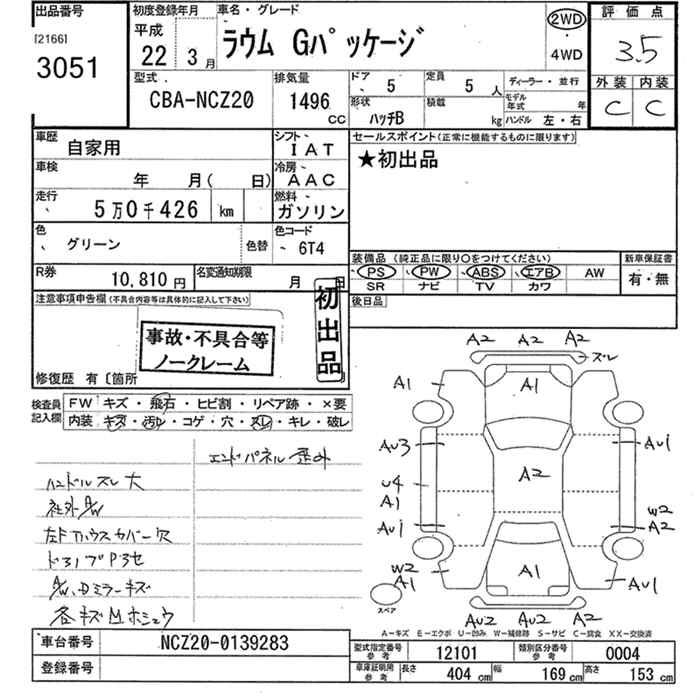 出品番号
[2166]
3051
初度登録年月
平成
22年 3月
車名・グレード
ラウム Gパッケージ
2WD
4WD
評価点
3.5
外装 内装
C C
型式
CBA-NCZ20
排気量
1496
cc
ドア
5
定員
5人
ディーラー・並行
形状
ハッチB
積載
kg
モデル年式 年
ハンドル 左・右
車歴
自家用
シフト
IAT
車検
年 月( 日)
冷房
AAC
走行
5万0千426 km
燃料
ガソリン
色
グリーン
色替
色コード
6T4
R券
10,810円
名変通知期限
月 日
セールスポイント(正常に機能するものに限ります)
★初出品
装備品(純正品に限り○をつけてください)
PS PW ABS エアB AW
SR ナビ TV カワ
新車保証書
有・無
後日品
注意事項申告欄(不具合内容等は具体的に記入して下さい)
事故・不具合等
ノークレーム
初出品
修復歴 有〔箇所
検査員記入欄
FW キズ・飛石・ヒビ割・リペア跡・×要
内装 キズ・汚れ・コゲ・穴・スレ・キレ・破レ
エンドパネル 歪外
ハンドルスレ大
社外AW
左Fカウスカバー欠
AW、Dミラーキズ
各キズ
A2 A2 A2
スレ
A1 A1
AU3 AU1
A2
U4
A1
W2
AU1 A2
W2
A1 A1 AU1
スペア
AU2 AU2 A2
A-キズ E-エクボ U-凹み W-補修跡 S-サビ C-腐食 XX-交換済
車台番号
NCZ20-0139283
登録番号
型式指定番号
参考
12101
類別区分番号
参考
0004
車庫証明用
参考
長さ 404 cm 幅 169 cm 高さ 153 cm